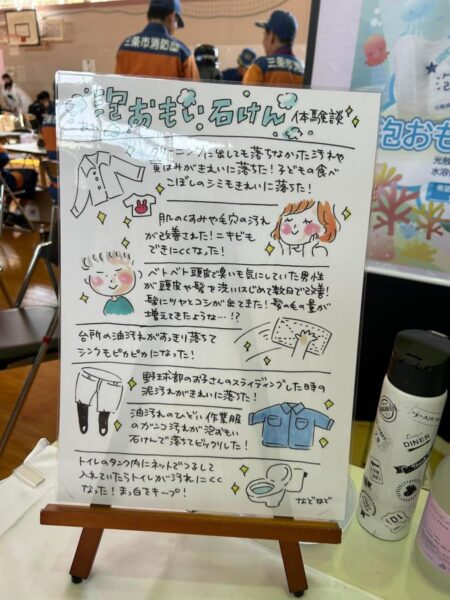 三条市消防団
三条市消防団
泡おもい石けん 体験談
クリーニングに出しても落ちなかった汚れや
黄ばみがきれいに落ちた！子どもの食べ
こぼしのシミもきれいに落ちた！
肌のくすみや毛穴の汚れ
が改善された！ニキビも
できにくくなった！
ベトベト頭皮で臭いも気にしていた男性
が頭皮や髪を洗いはじめて数日で改善！
髪にツヤとコシが出てきた！髪の毛の量が
増えてきたような…!?
台所の油汚れがすっきり落ちて
シンクもピカピカになった！
野球部のお子さんのスライディングした時の
泥汚れがきれいに落ちた！
油汚れのひどい作業服
のガンコ汚れが泡おもい
石けんで落ちてビックリした！
トイレのタンク内にネットでつるして
入れていたらトイレが汚れにくく
なった！まっ白をキープ！
などなど
泡おも
光触
水溶
DINER